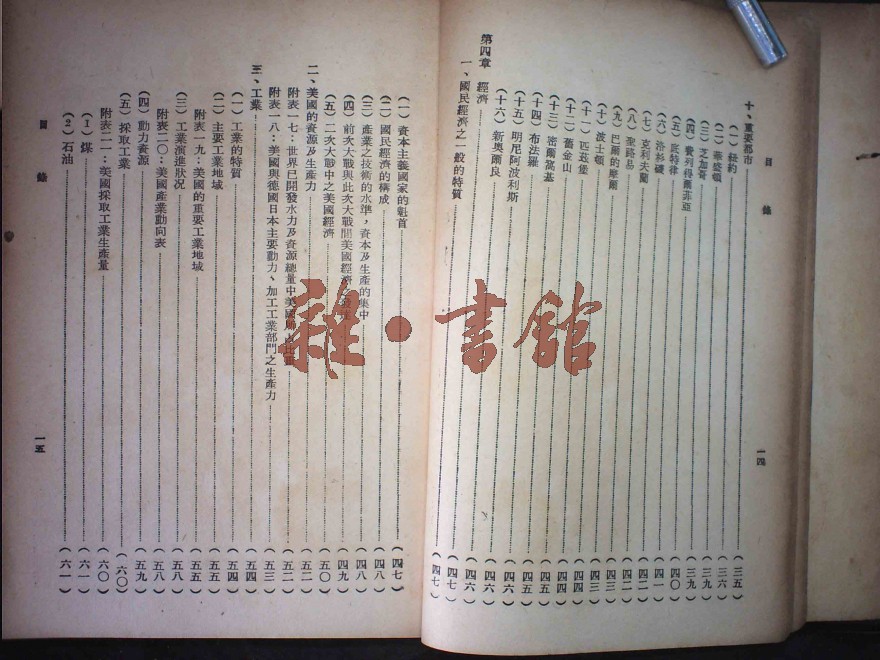 目錄
一四
十、重要都市(三五)
(一)紐約(三六)
(二)華盛頓(三九)
(三)芝加哥(三九)
(四)費列得爾菲亞(四〇)
(五)底特律(四一)
(六)洛杉磯(四二)
(七)克利夫蘭(四二)
(八)聖路易(四三)
(九)巴爾的摩爾(四三)
(十)波士頓(四四)
(十一)匹茲堡(四四)
(十二)舊金山(四五)
(十三)密爾窩基(四五)
(十四)布法羅(四六)
(十五)明尼阿波利斯(四六)
(十六)新奧爾良(四六)
第四章 經濟(四七)
一、國民經濟之一般的特質(四七)
(一)資本主義國家的魁首(四七)
(二)國民經濟的構成(四八)
(三)產業之技術的水準,資本及生產的集中(四八)
(四)前次大戰與此次大戰間美國經濟(四九)
(五)二次大戰中之美國經濟(五〇)
二、美國的資源及生產力(五二)
附表一七:世界已開發水力及資源總量中美國所占比重(五二)
附表一八:美國與德國日本主要動力、加工工業部門之生產力(五三)
三、工業(五四)
(一)工業的特質(五四)
(二)主要工業地域(五五)
附表一九:美國的重要工業地域(五五)
(三)工業演進狀況(五八)
附表二〇:美國產業動向表(五八)
(四)動力資源(五九)
(五)採取工業(六〇)
附表二一:美國採取工業生產量(六〇)
(1)煤(六一)
(2)石油(六一)
目錄
一五
雜·書館